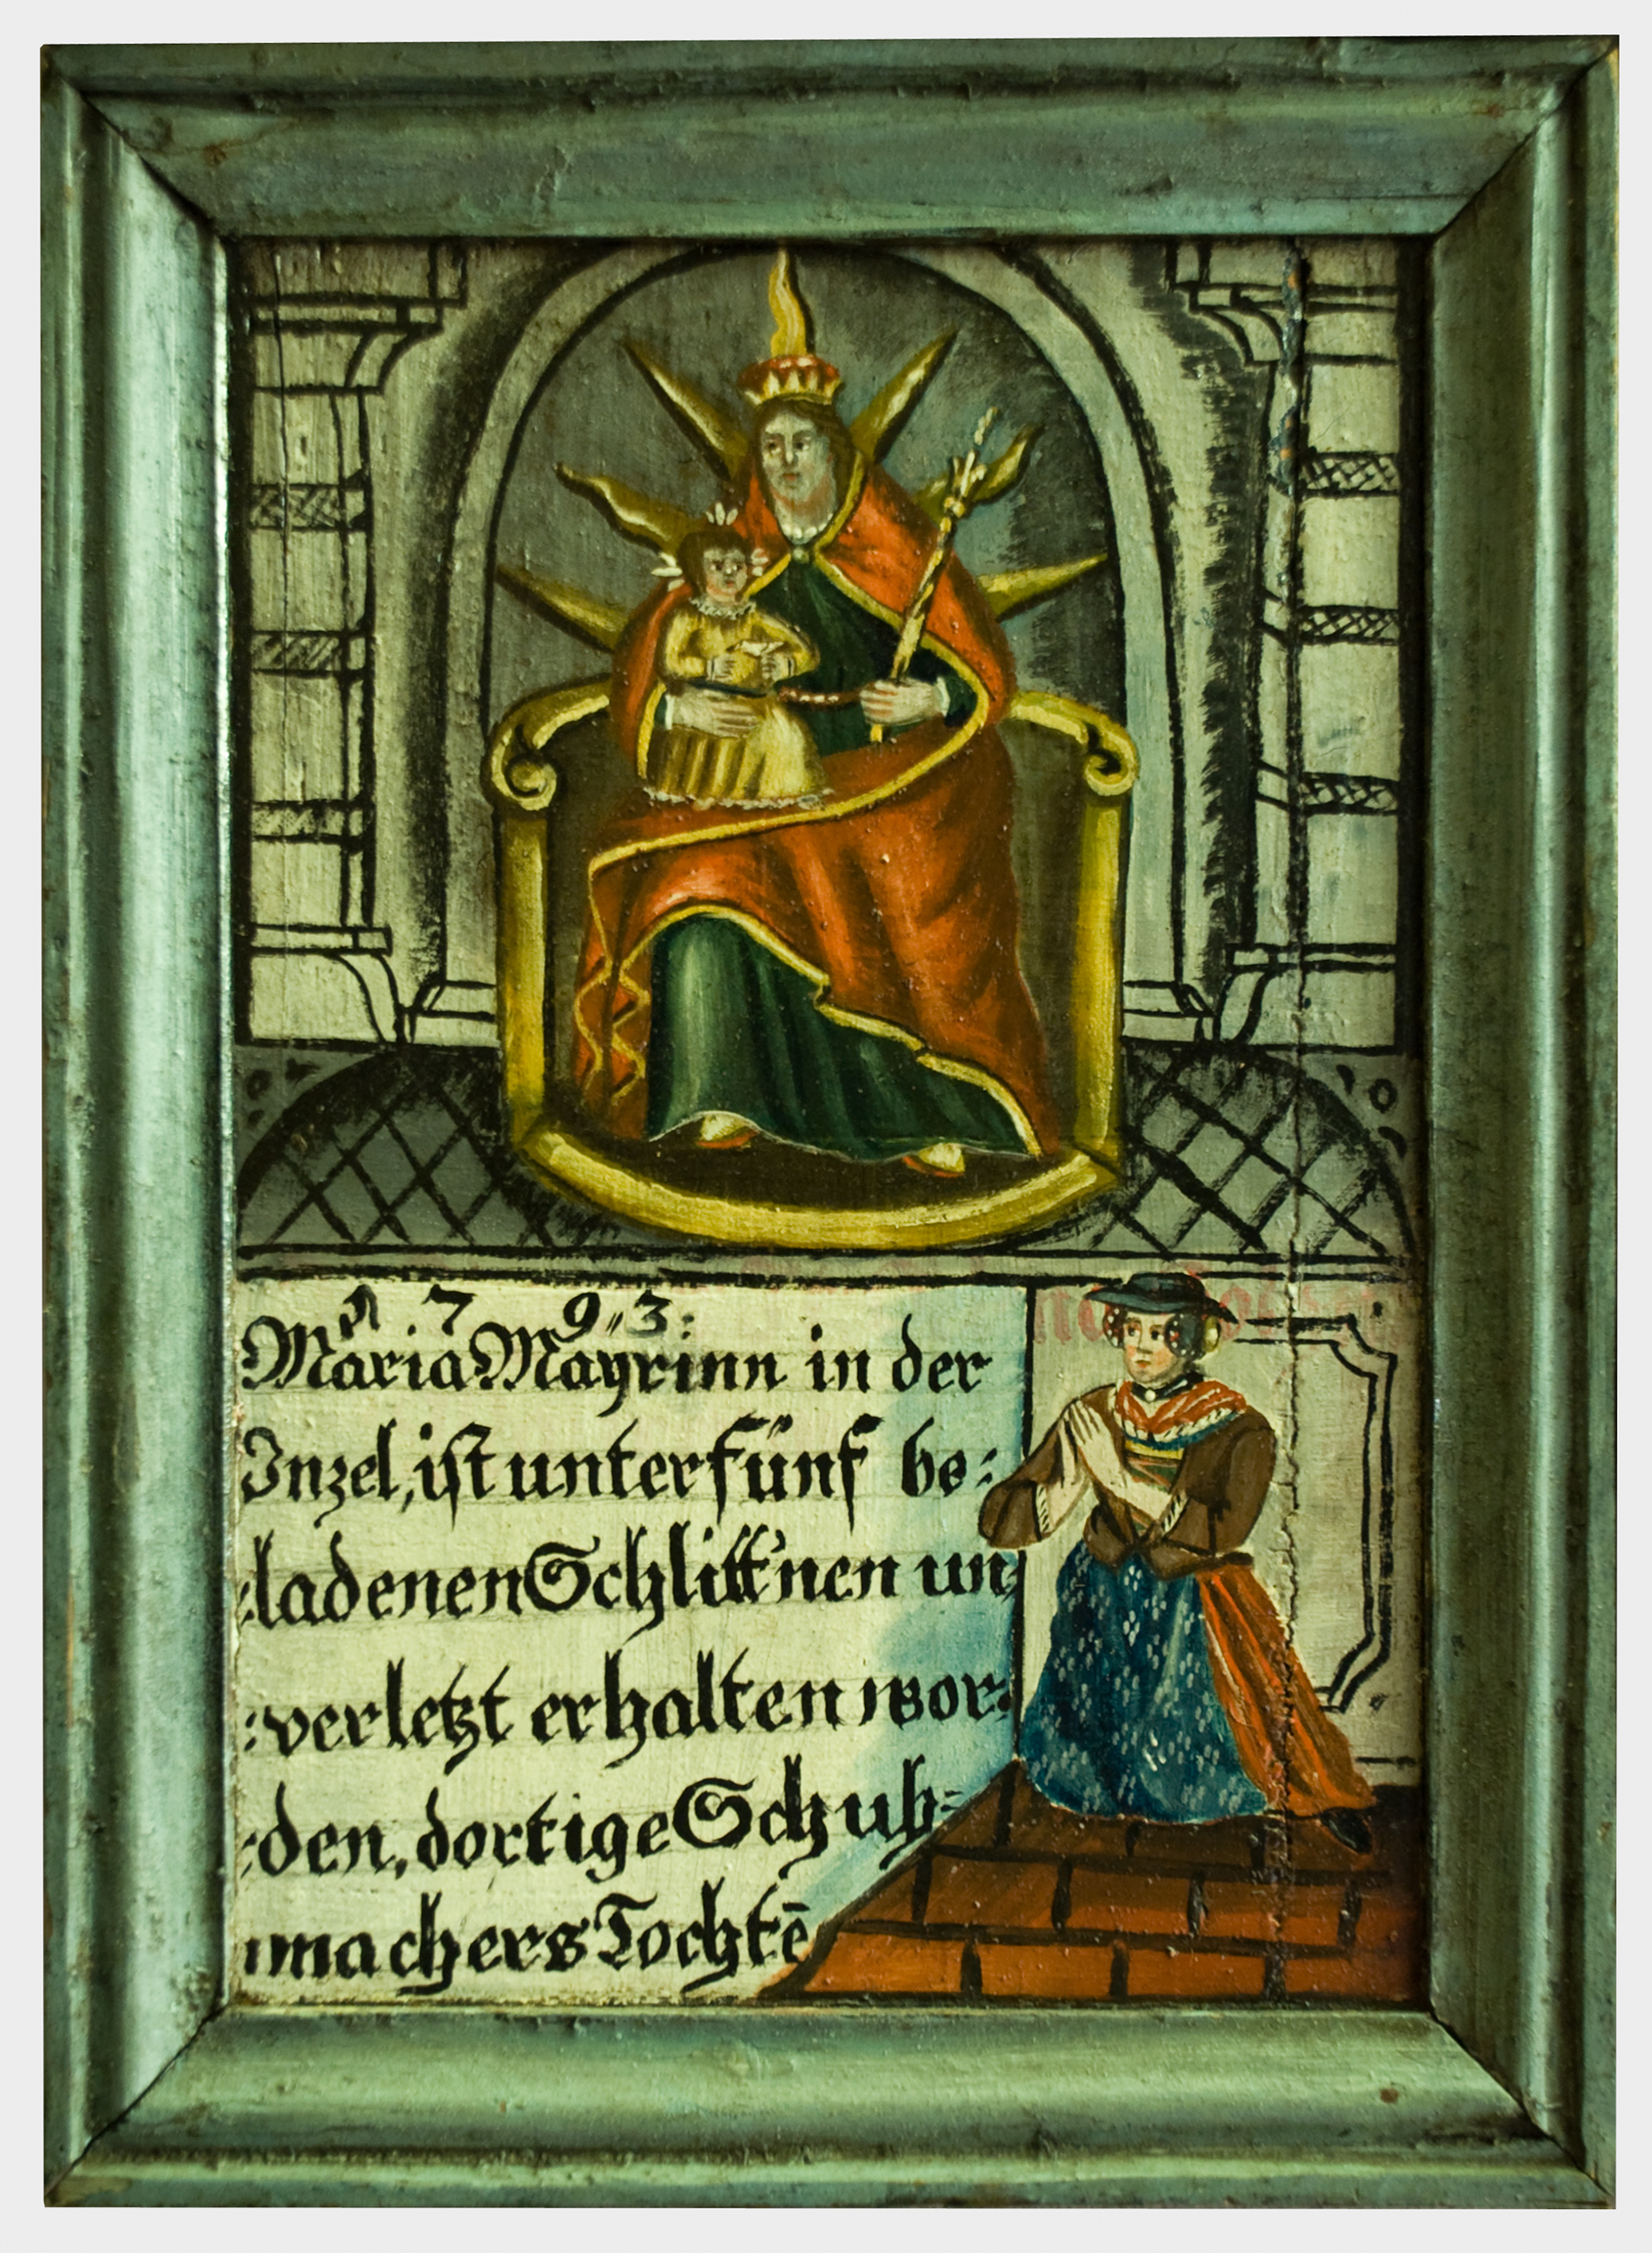 1 7 9 „ 3 :
Maria Mayrinn in der
Inzel, ist unter fünf be⸗
⸗ladenen Schlitt'nen un⸗
⸗verletzt erhalten wor⸗
⸗den, dortige Schuh⸗
macherstochtē